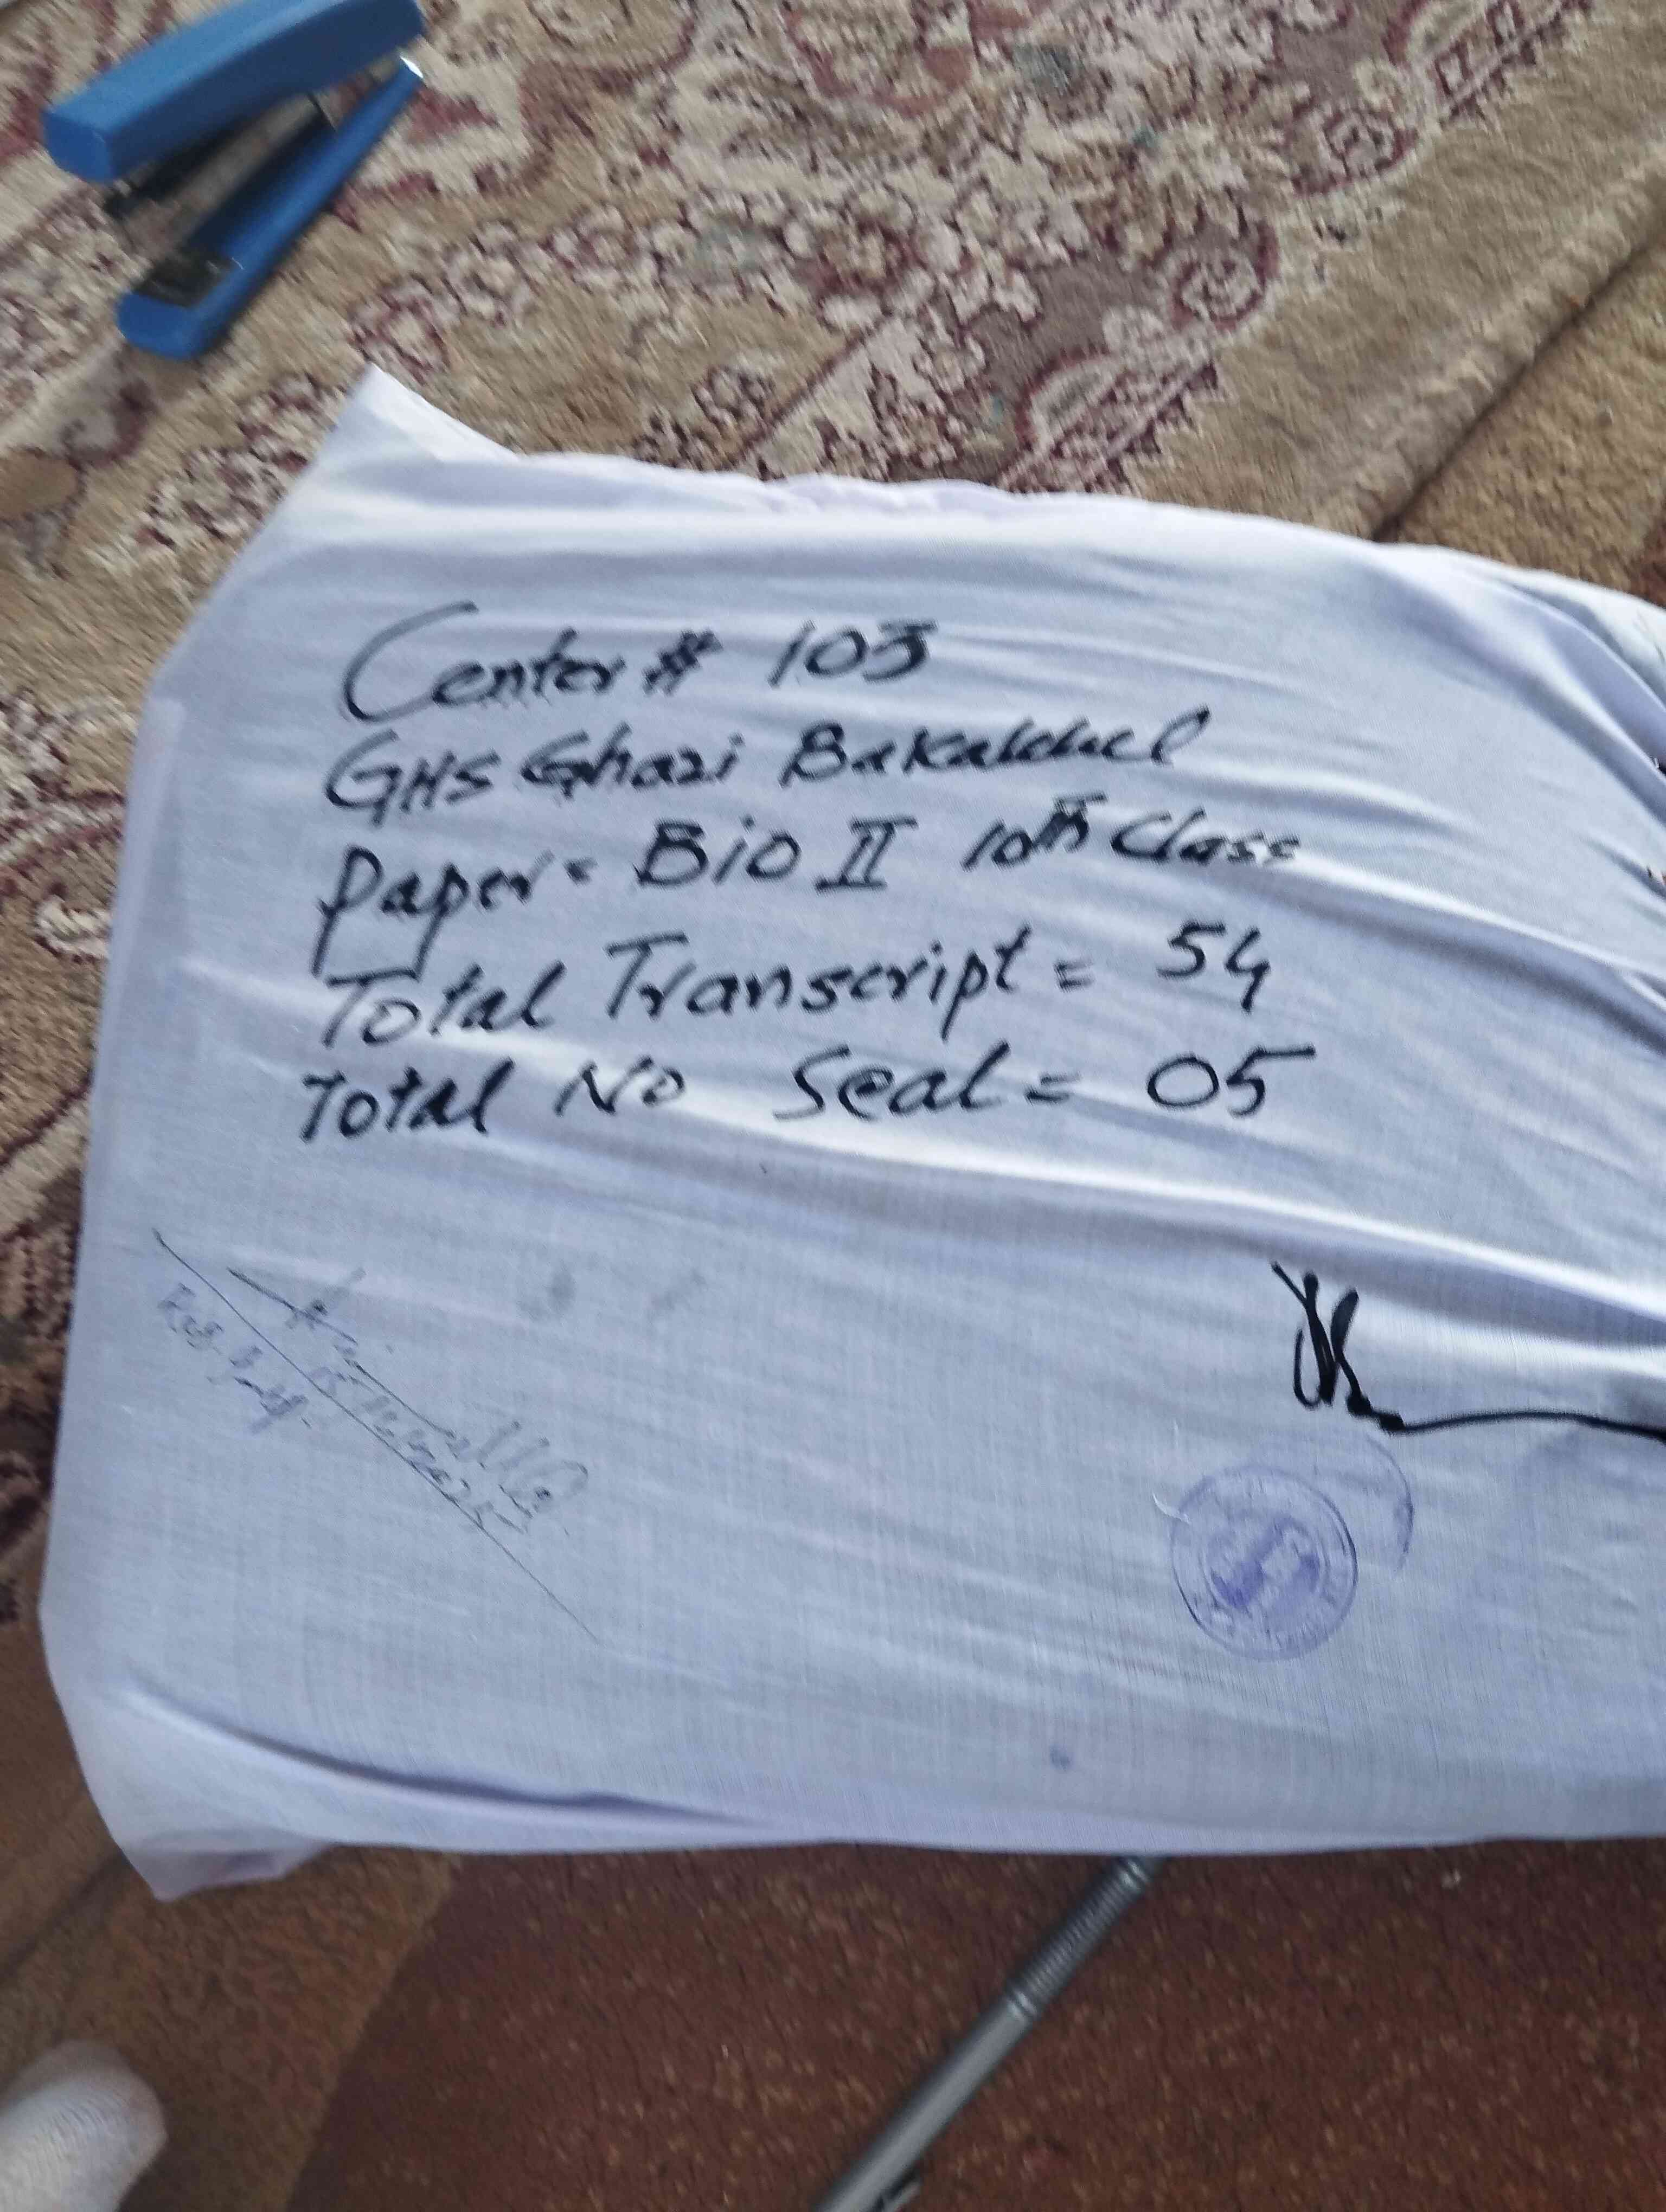 Center # 103
GHS Ghazi Bakakhel
Paper = Bio II 10th Class
Total Transcript = 54
Total No Seal = 05